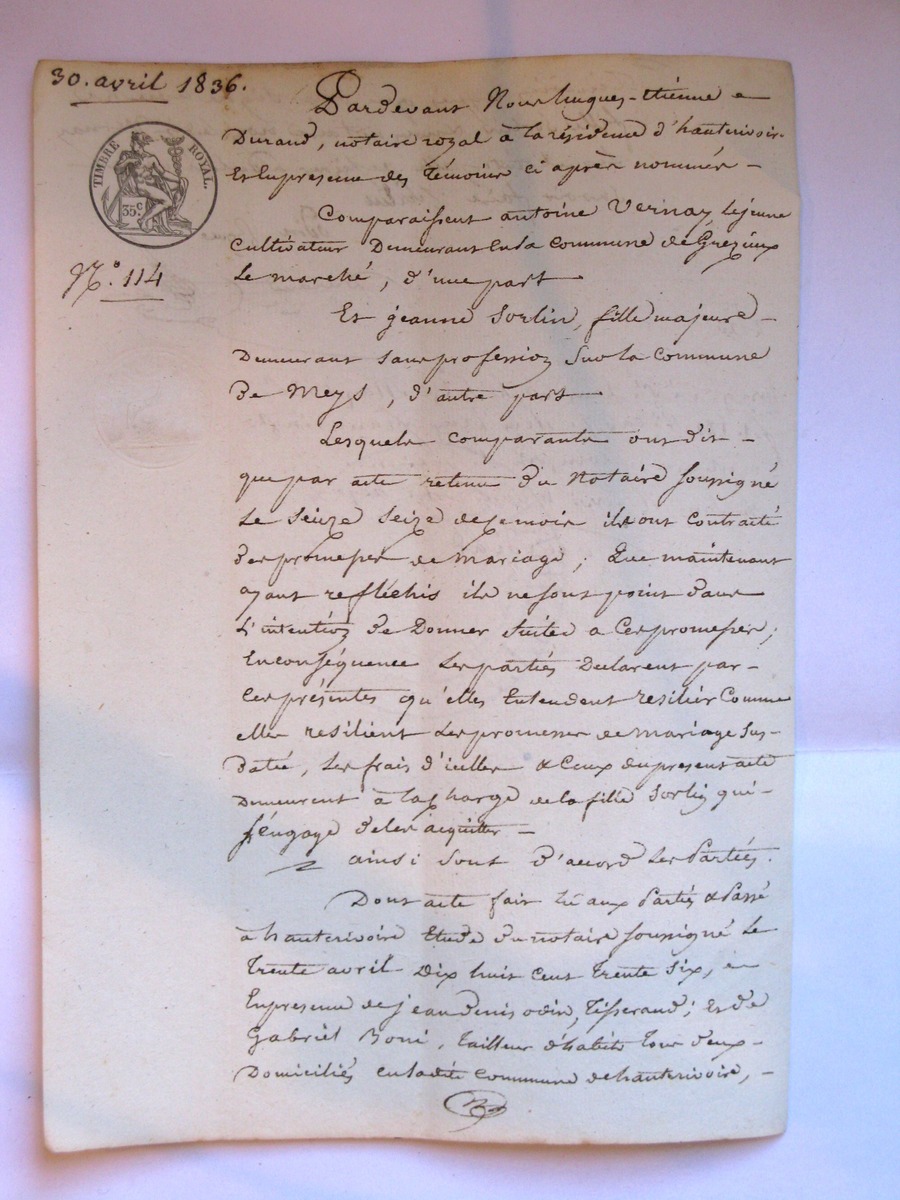 30. avril 1836.
TIMBRE ROYAL.
35c
N.° 114
Pardevant Nous hugues-étienne
Durand, notaire royal à la résidence d'hauterivoire
Et En presence des témoins ci après nommés -
Comparaissent antoine Vernay, le jeune
cultivateur Demeurant En la commune de Grezieux
Le marché, d'une part
Et jeanne Sorlin, fille majeure -
Demeurant sans profession Sur la commune
De Meys, d'autre part
Lesquels comparants ont dit -
que par acte retenu du Notaire soussigné
Le Seize Seize de ce mois ils ont contracté
des promesses de mariage; Que maintenant
ayant reflechis ils ne sont point dans
L'intention De Donner Suites a Ces promesses;
En conséquence Les parties Déclarent par -
Ces présentes qu'elles Entendent resilier Comme
elles resilient Les promesses de mariage Sus-
Datée, Les frais d'icelles & Ceux du present acte
Demeurent à la charge de la fille Sorlin qui -
s'engage De les acquitter -
ainsi Sont D'accord Les Parties.
Dont acte fait lu aux Parties & Passé
à hauterivoire Etude du notaire soussigné Le
trente avril Dix huit Cent trente Six,
En presence de jean denis odin, tisserand; et de
Gabriel Boni, tailleur d'habits tous deux -
Domiciliés en ladite commune de hauterivoire, -